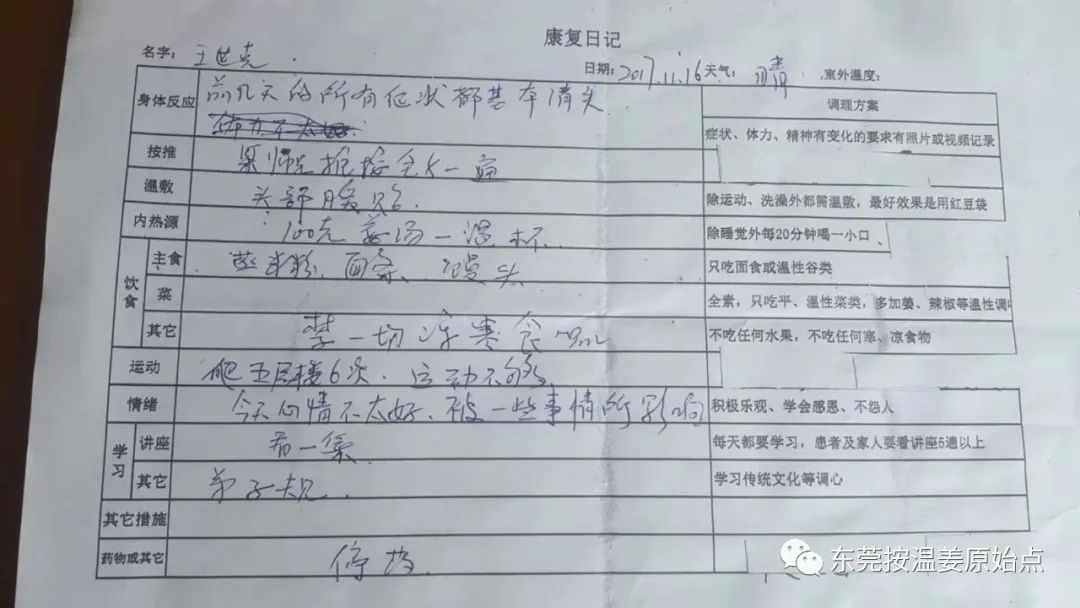 康复日记
名字: 王世克 日期: 2017.11.16 天气: 晴 室外温度:
身体反应 前几天的所有症状都基本消失 调理方案
症状、体力、精神有变化的要求有照片或视频记录
按推 师兄推按全一遍
温敷 头部暖贴. 除运动、洗澡外都需温敷，最好效果是用红豆袋
内热源 100克姜汤一温杯. 除睡觉外每20分钟喝一小口
饮食 主食 蒸米粉、面条、馒头 只吃面食或温性谷类
菜 全素，只吃平、温性菜类，多加姜、辣椒等温性调
其它 禁一切冷寒食品 不吃任何水果，不吃任何寒、凉食物
运动 爬五层楼6次. 运动不够
情绪 今天心情不太好、被一些事情所影响 积极乐观、学会感恩、不怨人
学习 讲座 看一集 每天都要学习，患者及家人要看讲座5遍以上
其它 弟子规. 学习传统文化等调心
其它措施
药物或其它 停药.
东莞按温姜原始点